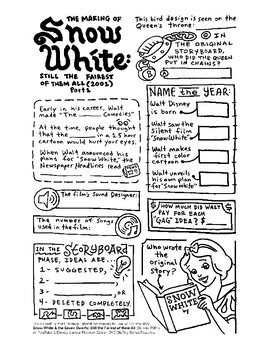 THE MAKING OF
Snow
White:
STILL THE FAIREST
OF THEM ALL (2001)
Part 2
This bird design is seen on the
Queen's throne:
IN THE
ORIGINAL
STORYBOARD,
WHO DID THE QUEEN
PUT IN CHAINS?
Early in his career, Walt
made "The Comedies"
At the time, people thought
that the in a 1.5 hour
cartoon would hurt your eyes.
When Walt announced his
plans for "Snow White," the
Newspaper Headlines read:
NAME the YEAR:
Walt Disney
is born
Walt saw the
Silent film
"Snow White"
Walt makes
first color
cartoon
Walt unveils
his own plan
for "Snow White"
The film's Sound Designer:
The number of songs
used in the film:
HOW MUCH DID WALT
PAY FOR EACH
"GAG" IDEA?
IN THE STORYBOARD
PHASE, IDEAS ARE...
1- SUGGESTED,
2-
3-
4- DELETED COMPLETELY.
Who wrote
the
original
Story?
SNOW
WHITE
by